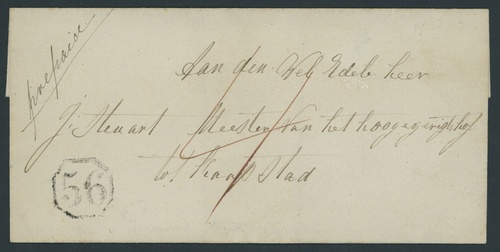 prepaid
Aan den Wel Edele heer
J. Steuart Meester Van het hooge geregtshof
tot Kaap Stad
56